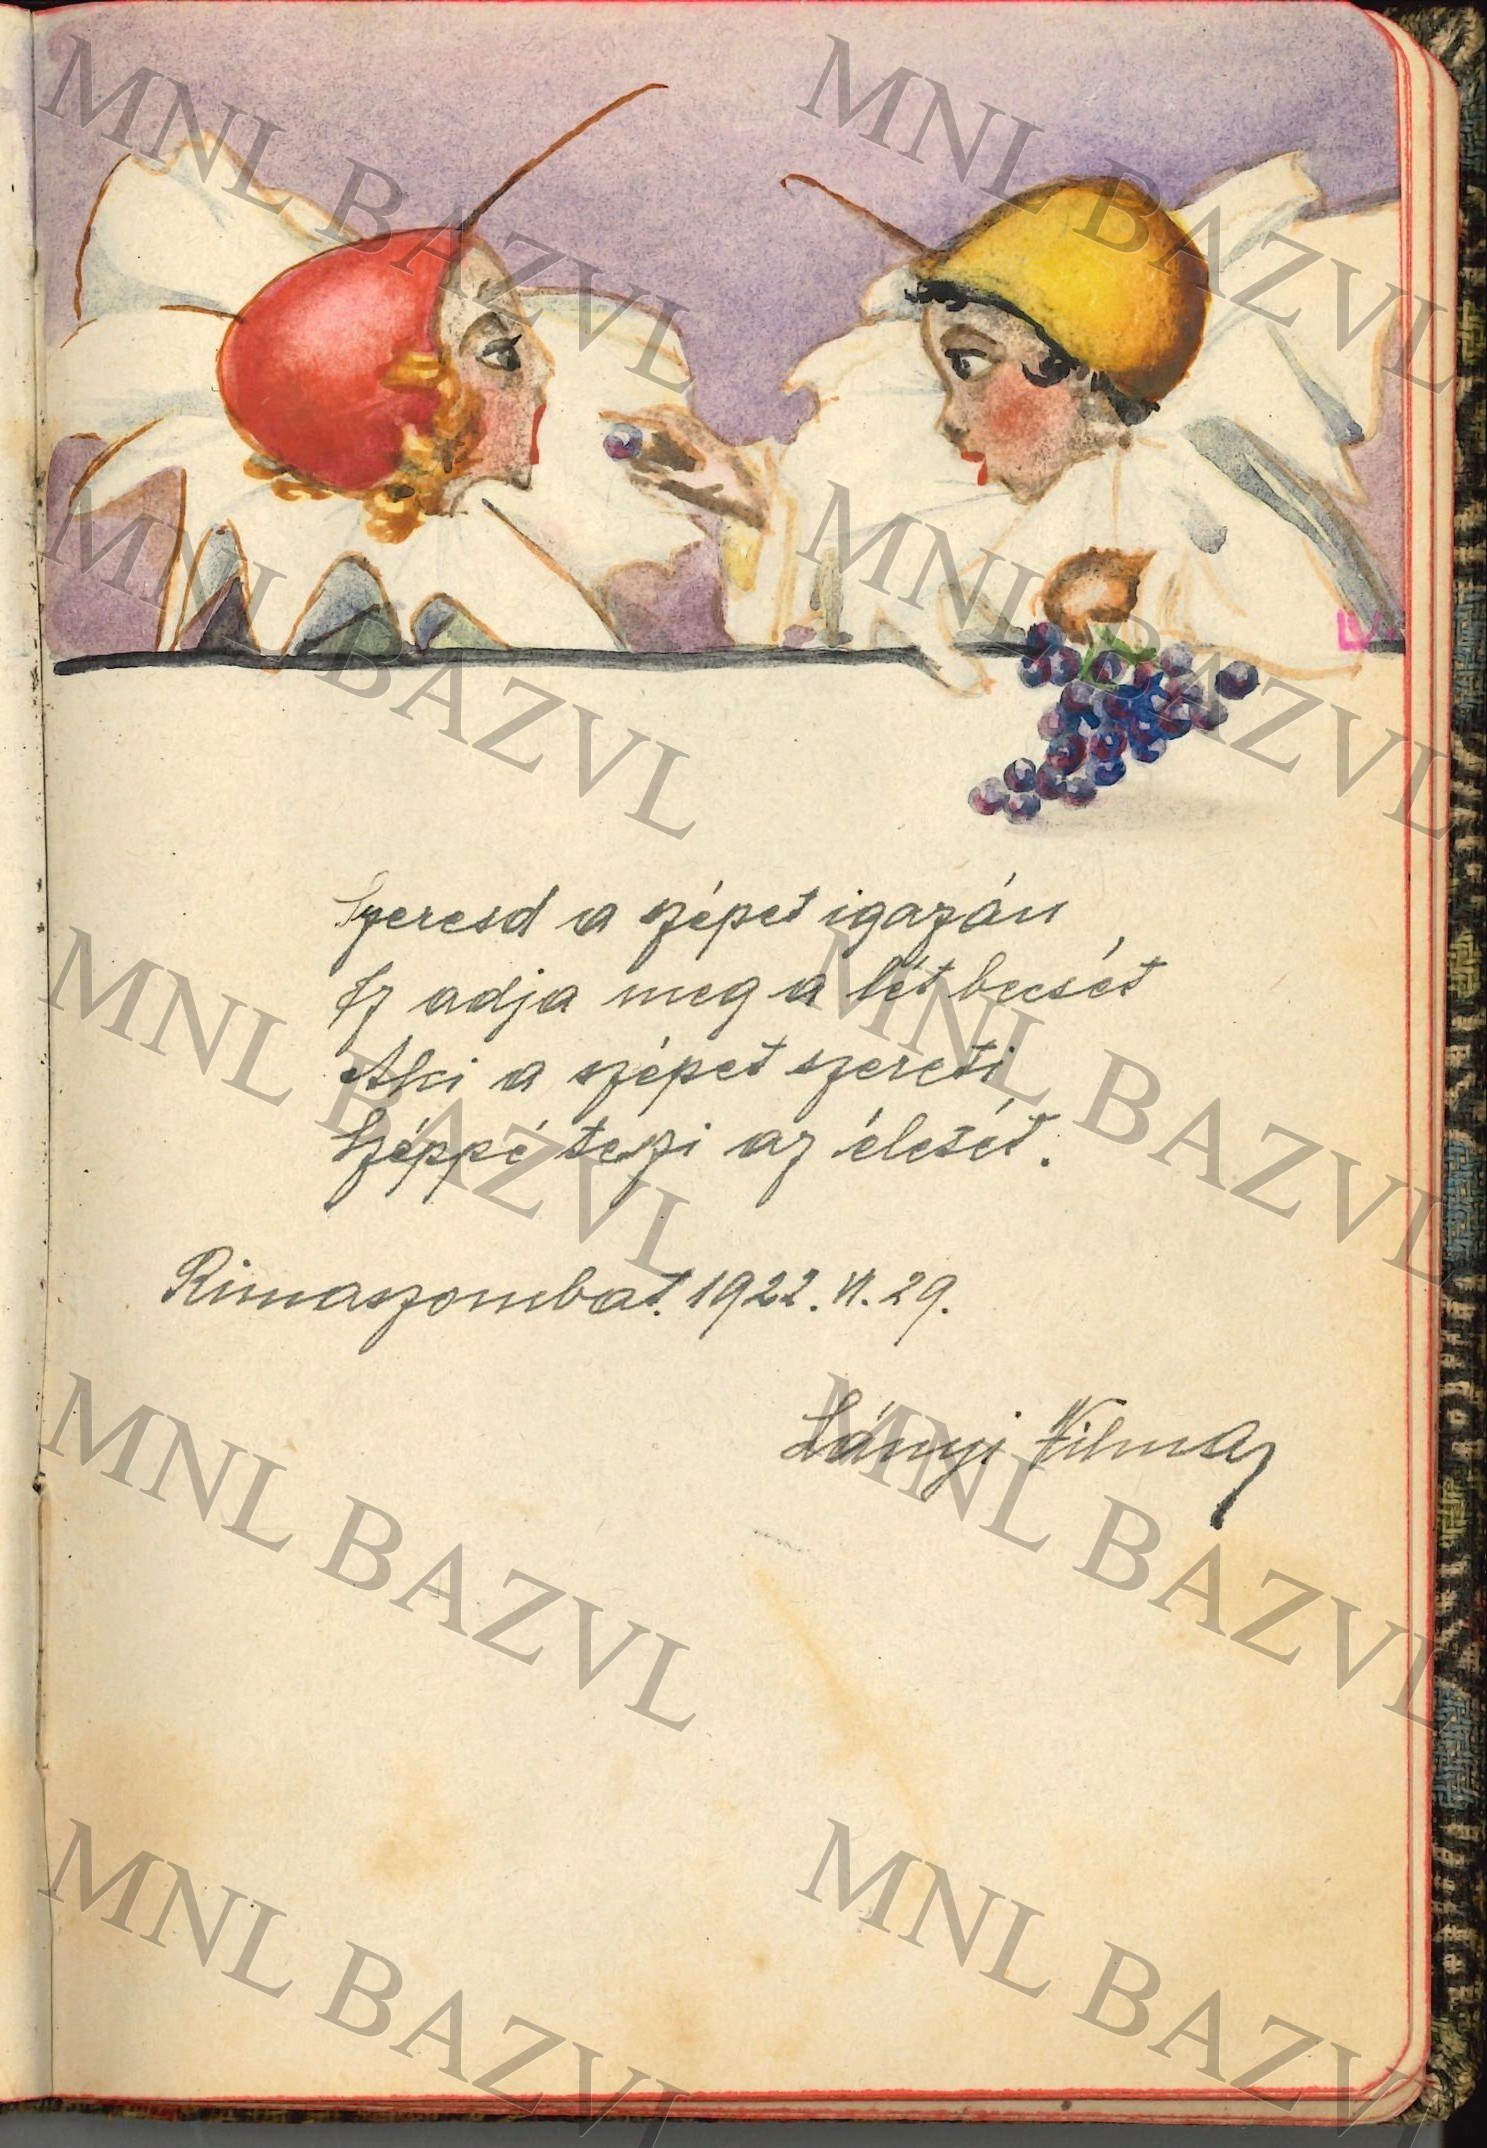 Szeresd a szépet igazán
Ez adja meg a lét becsét
Aki a szépet szereti,
Széppé teszi az életét.
Rimaszombat. 1922. VI. 29.
Lányi Vilma
LV.
MNL BAZVL
MNL BAZVL
MNL BAZVL
MNL BAZVL
MNL BAZVL
MNL BAZVL
MNL BAZVL
MNL BAZVL
MNL BAZVL
MNL BAZVL